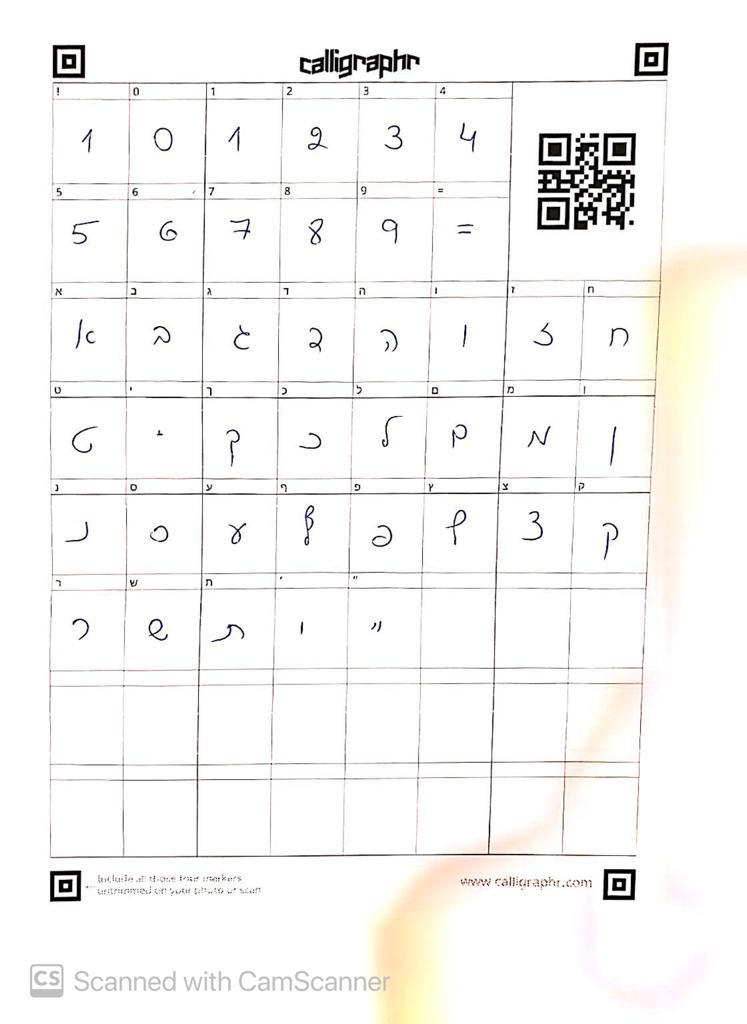 calligraphr
! 0 1 2 3 4
1 0 1 2 3 4
5 6 7 8 9 =
5 6 7 8 9 =
א ב ג ד ה ו ז ח
א ב ג ד ה ו ז ח
ט י ך כ ל ם מ ן
ט י ך כ ל ם מ ן
נ ס ע ף פ ץ צ ק
נ ס ע ף פ ץ צ ק
ר ש ת ' "
ר ש ת ' "
Include all those four markers
untrimmed on your photo or scan
www.calligraphr.com
CS Scanned with CamScanner